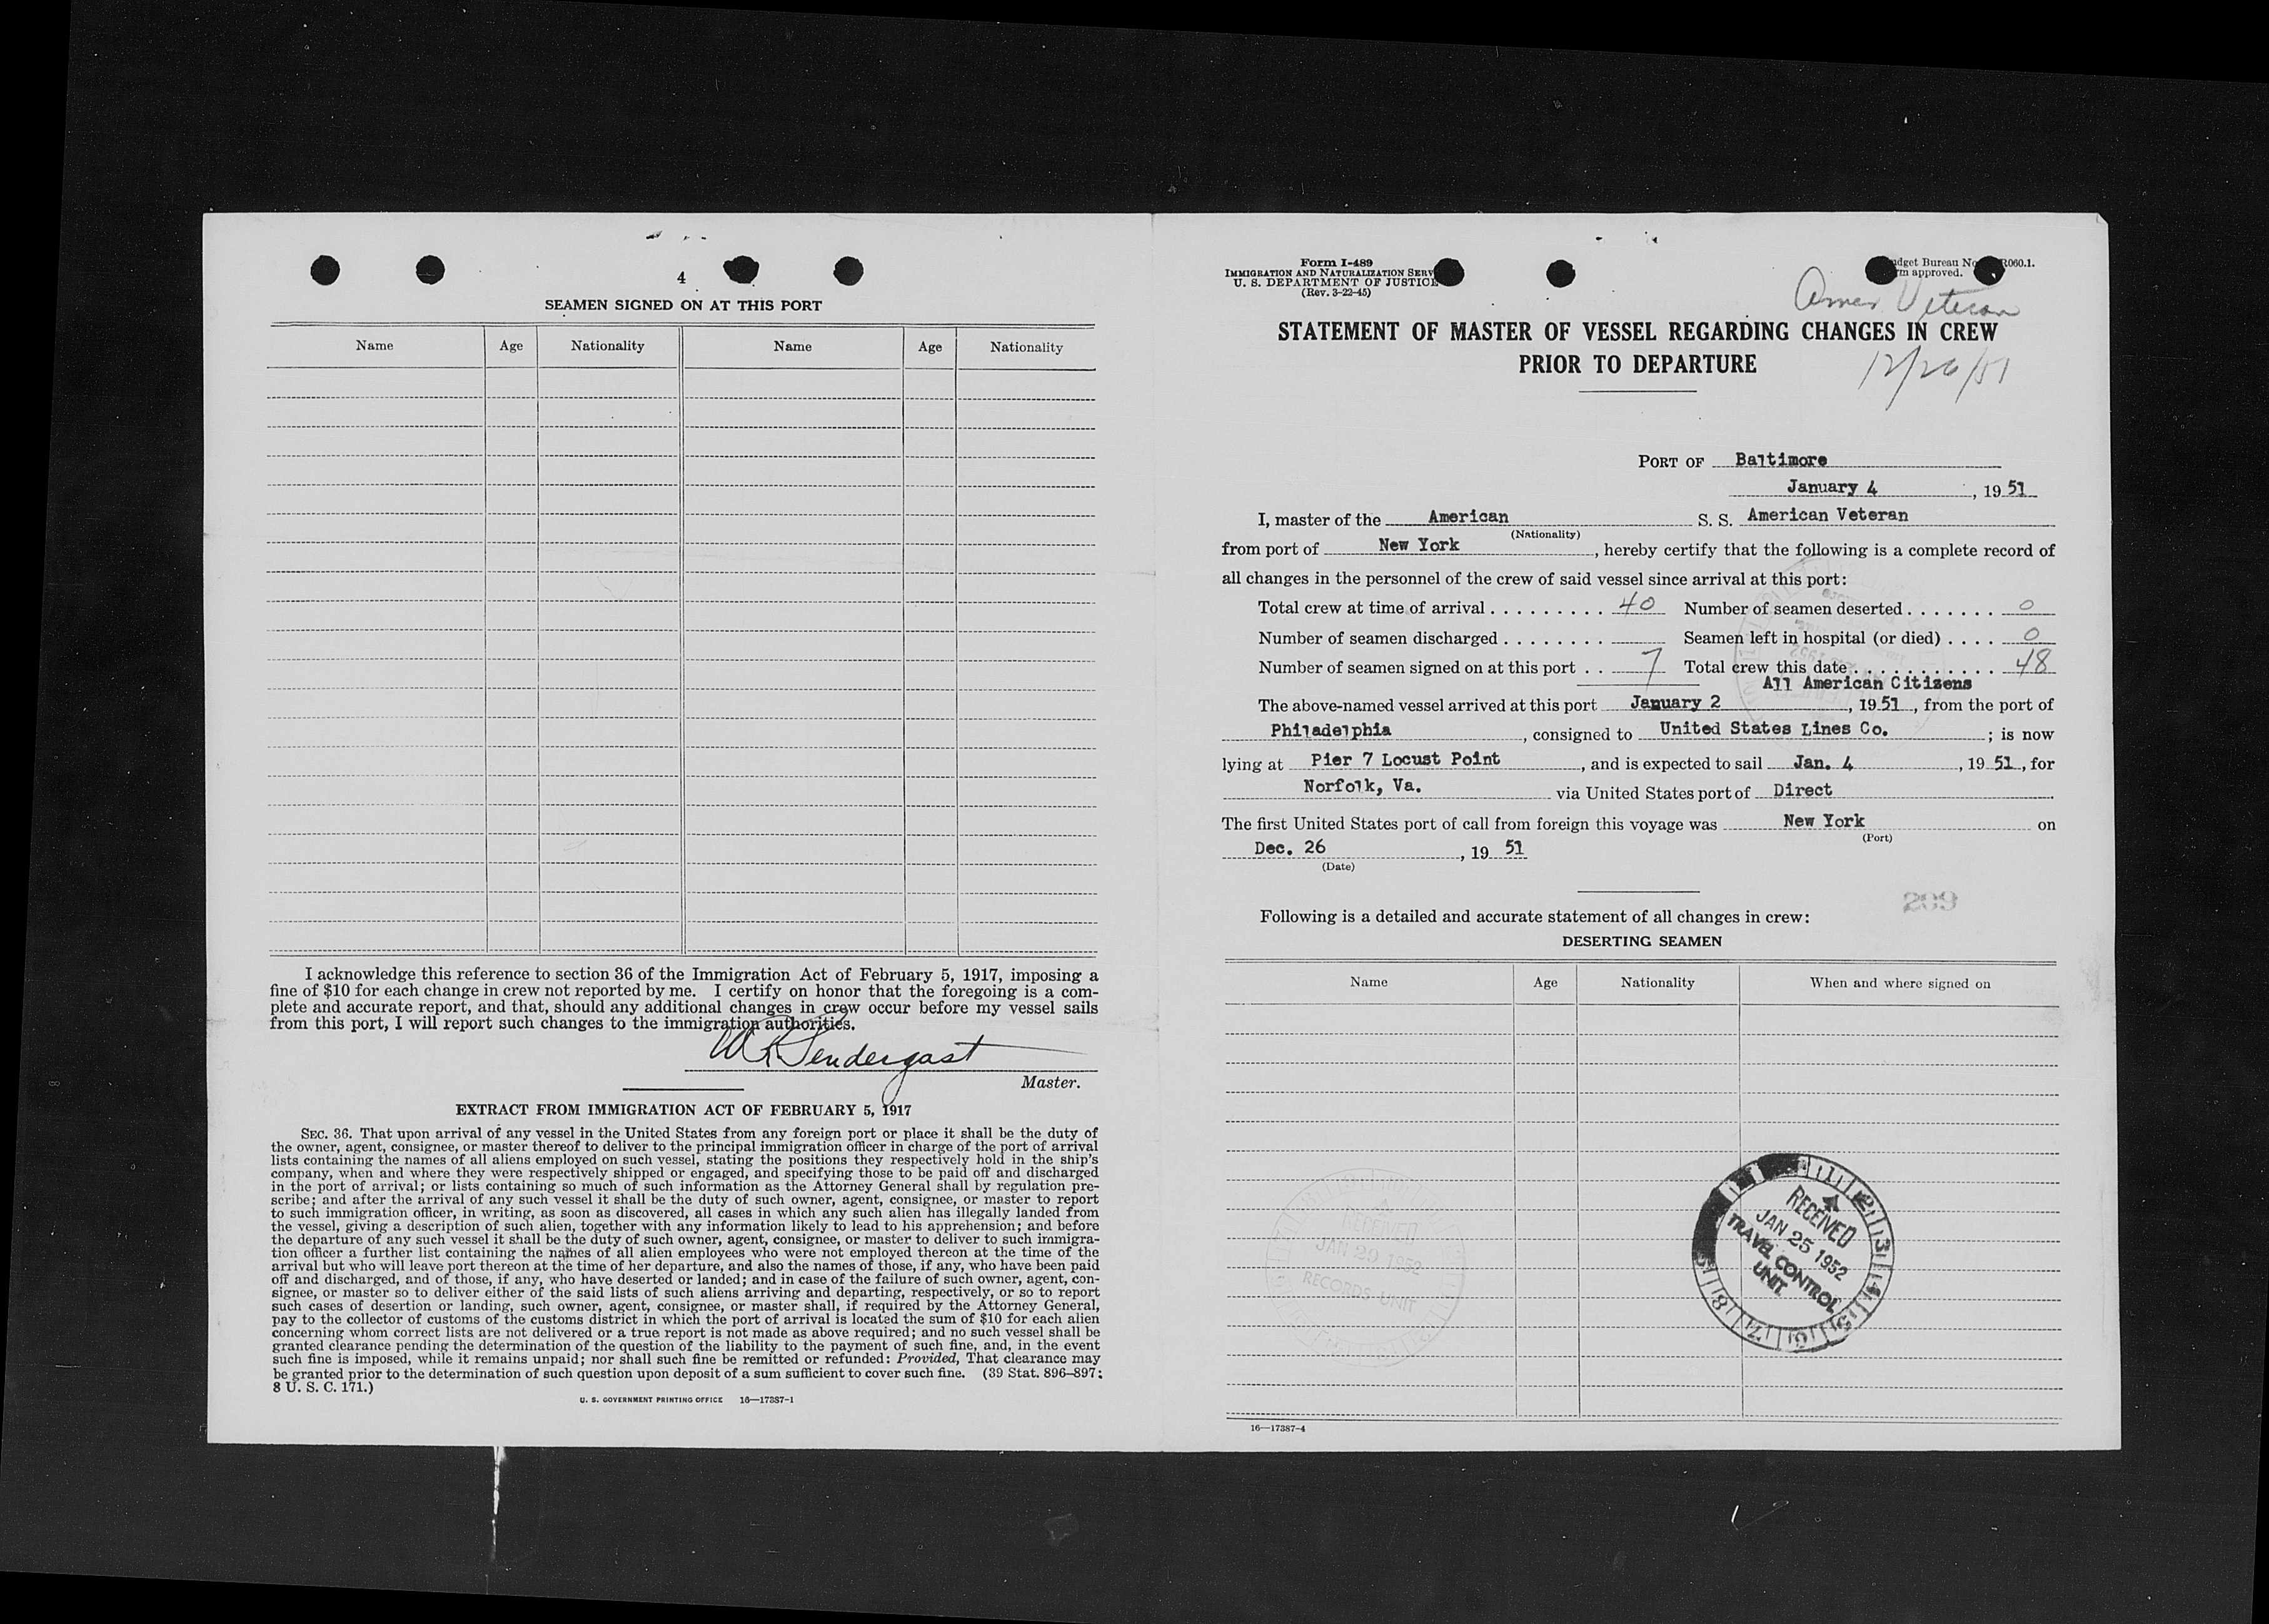 4
SEAMEN SIGNED ON AT THIS PORT
Name Age Nationality Name Age Nationality
I acknowledge this reference to section 36 of the Immigration Act of February 5, 1917, imposing a
fine of $10 for each change in crew not reported by me. I certify on honor that the foregoing is a com-
plete and accurate report, and that, should any additional changes in crew occur before my vessel sails
from this port, I will report such changes to the immigration authorities.
Master.
EXTRACT FROM IMMIGRATION ACT OF FEBRUARY 5, 1917
SEC. 36. That upon arrival of any vessel in the United States from any foreign port or place it shall be the duty of
the owner, agent, consignee, or master thereof to deliver to the principal immigration officer in charge of the port of arrival
lists containing the names of all aliens employed on such vessel, stating the positions they respectively hold in the ship's
company, when and where they were respectively shipped or engaged, and specifying those to be paid off and discharged
in the port of arrival; or lists containing so much of such information as the Attorney General shall by regulation pre-
scribe; and after the arrival of any such vessel it shall be the duty of such owner, agent, consignee, or master to report
to such immigration officer, in writing, as soon as discovered, all cases in which any such alien has illegally landed from
the vessel, giving a description of such alien, together with any information likely to lead to his apprehension; and before
the departure of any such vessel it shall be the duty of such owner, agent, consignee, or master to deliver to such immigra-
tion officer a further list containing the names of all alien employees who were not employed thereon at the time of the
arrival but who will leave port thereon at the time of her departure, and also the names of those, if any, who have been paid
off and discharged, and of those, if any, who have deserted or landed; and in case of the failure of such owner, agent, con-
signee, or master so to deliver either of the said lists of such aliens arriving and departing, respectively, or so to report
such cases of desertion or landing, such owner, agent, consignee, or master shall, if required by the Attorney General,
pay to the collector of customs of the customs district in which the port of arrival is located the sum of $10 for each alien
concerning whom correct lists are not delivered or a true report is not made as above required; and no such vessel shall be
granted clearance pending the determination of the question of the liability to the payment of such fine, and, in the event
such fine is imposed, while it remains unpaid; nor shall such fine be remitted or refunded: Provided, That clearance may
be granted prior to the determination of such question upon deposit of a sum sufficient to cover such fine. (39 Stat. 896–897;
8 U. S. C. 171.)
U. S. GOVERNMENT PRINTING OFFICE 16—17387-1
Form I-489
IMMIGRATION AND NATURALIZATION SERV
U. S. DEPARTMENT OF JUSTICE
(Rev. 3-22-45)
dget Bureau No R060.1.
m approved.
Amer Veteran
STATEMENT OF MASTER OF VESSEL REGARDING CHANGES IN CREW
PRIOR TO DEPARTURE
12/26/51
PORT OF Baltimore
January 4, 19 51
I, master of the American S. S. American Veteran
(Nationality)
from port of New York, hereby certify that the following is a complete record of
all changes in the personnel of the crew of said vessel since arrival at this port:
Total crew at time of arrival . . . . . . . . . 40 Number of seamen deserted . . . . . . . 0
Number of seamen discharged . . . . . . . . Seamen left in hospital (or died) . . . . 0
Number of seamen signed on at this port . . 7 Total crew this date . . . . . . . . . . . . 48
All American Citizens
The above-named vessel arrived at this port January 2, 19 51, from the port of
Philadelphia, consigned to United States Lines Co. ; is now
lying at Pier 7 Locust Point, and is expected to sail Jan. 4, 19 51, for
Norfolk, Va. via United States port of Direct
The first United States port of call from foreign this voyage was New York on
(Port)
Dec. 26, 19 51
(Date)
209
Following is a detailed and accurate statement of all changes in crew:
DESERTING SEAMEN
Name Age Nationality When and where signed on
RECEIVED
JAN 25 1952
TRAVEL CONTROL
UNIT
RECEIVED
JAN 29 1952
RECORDS UNIT
16—17387-4